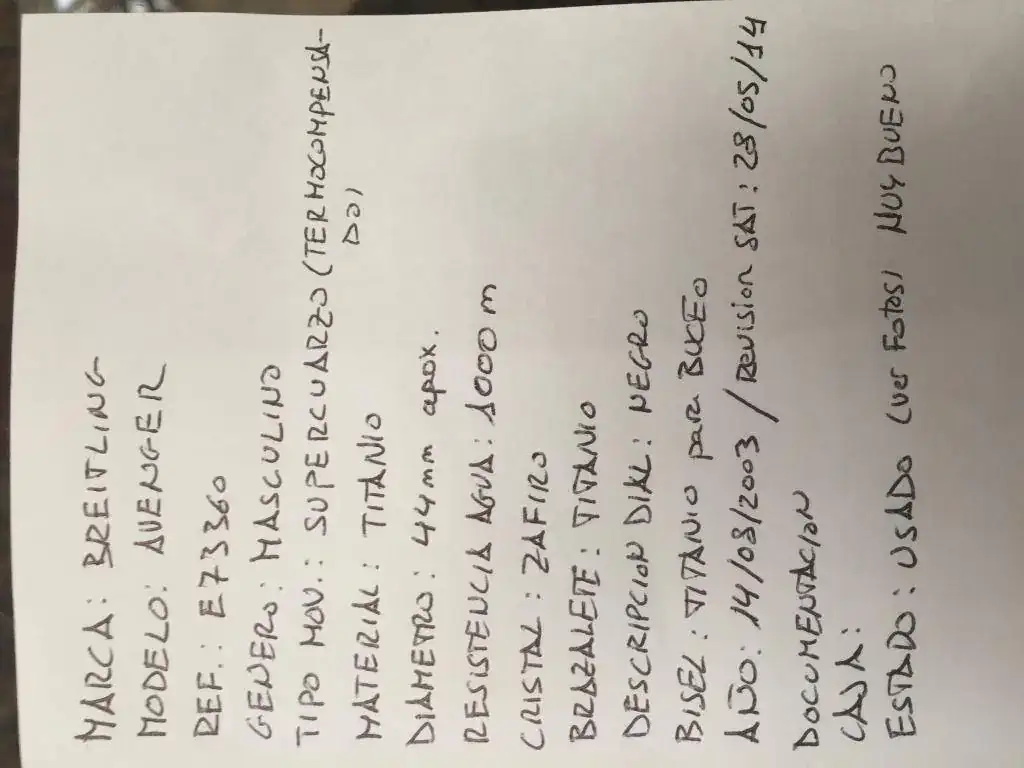 MARCA: BREITLING
MODELO: AVENGER
REF.: E73360
GENERO: MASCULINO
TIPO MOV.: SUPERCUARZO (TERMOCOMPENSA-
DO)
MATERIAL: TITANIO
DIAMETRO: 44mm apox.
RESISTENCIA AGUA: 1000 m
CRISTAL: ZAFIRO
BRAZALETE: TITANIO
DESCRIPCION DIAL: NEGRO
BISEL: TITANIO para BUCEO
AÑO: 14/08/2003 / Revision SAT: 28/05/14
DOCUMENTACION
CAJA:
ESTADO: USADO (ver Fotos) MUY BUENO